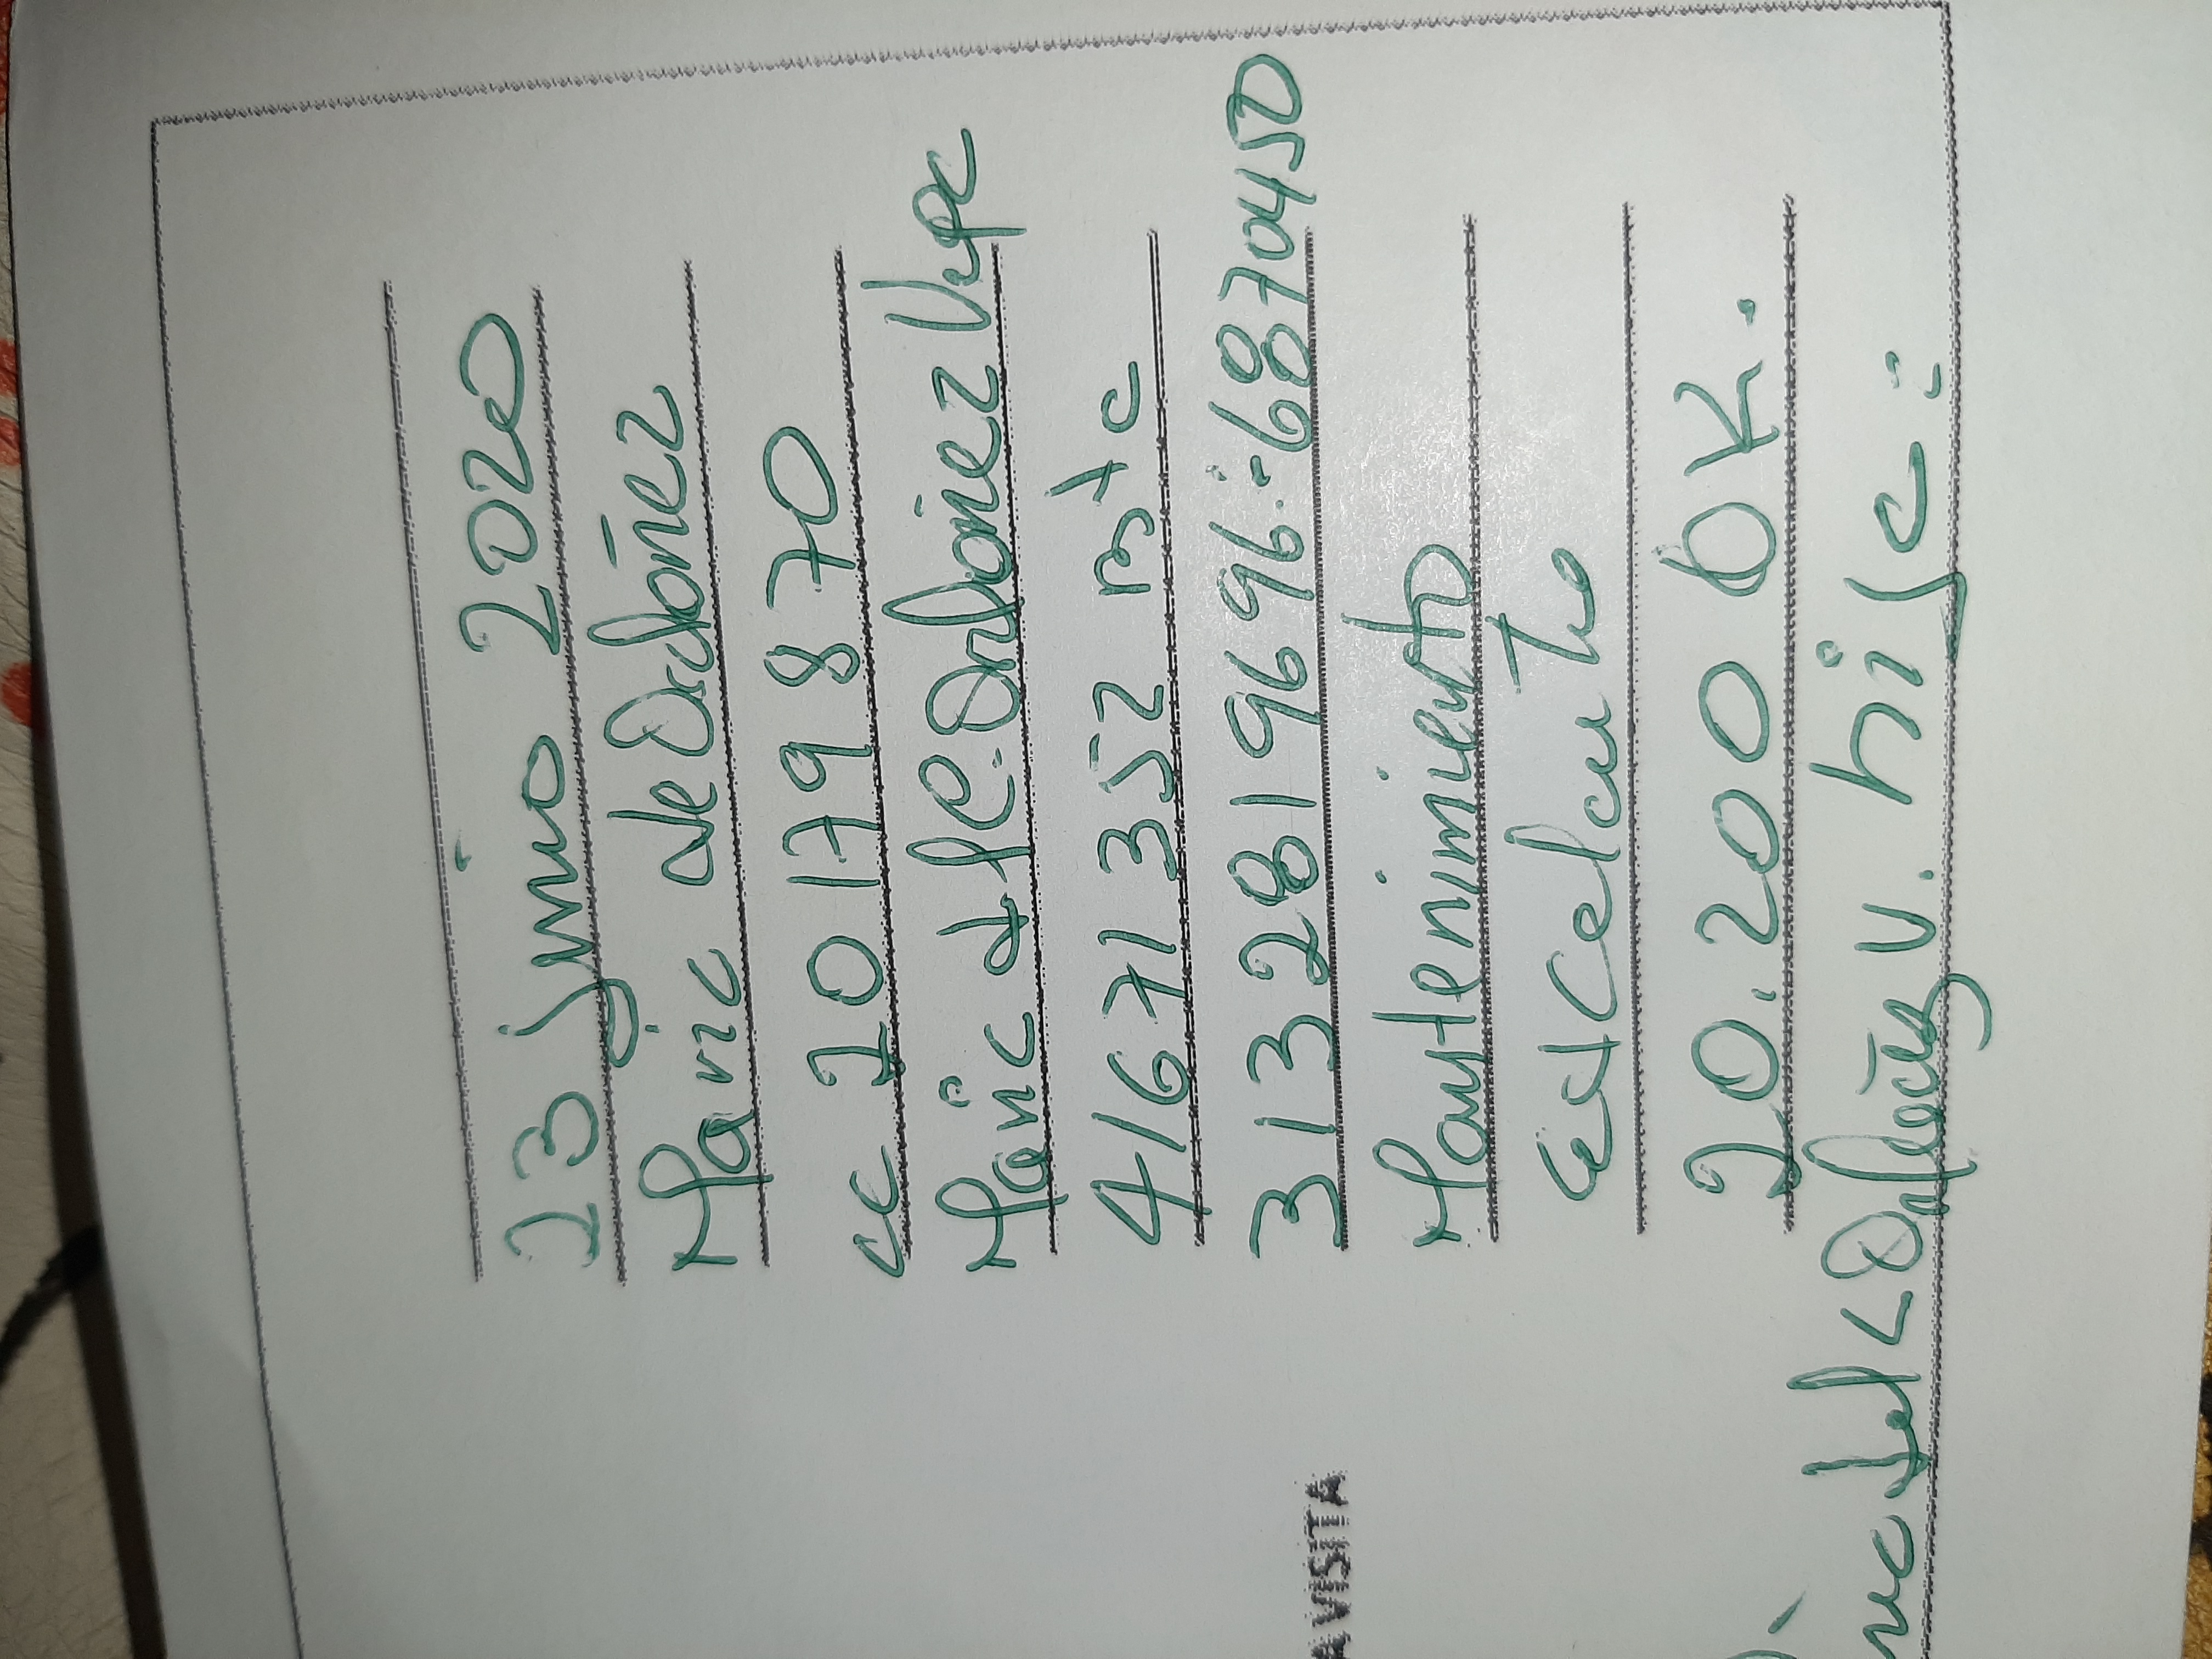 23 Junio 2020
Maria de Ordoñez
cc 20179870
Maria del C. Ordoñez Vepa
41671352 mtc
3132819696:-6870450
Mantenimiento
A VISITA
20.200 OK.
del C Ordoñez V. hija: